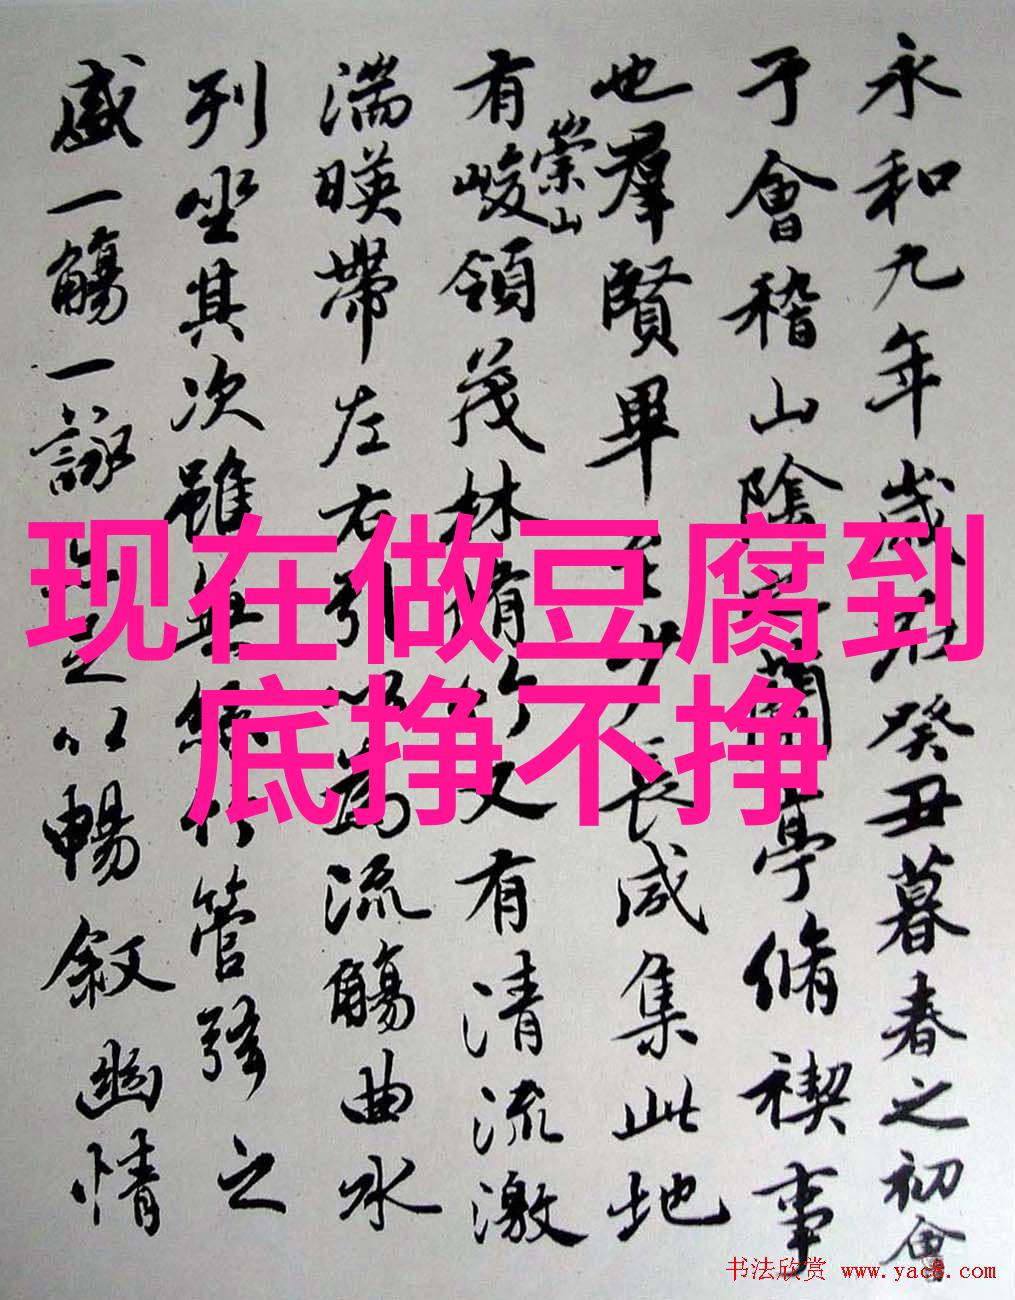 永和九年歲在癸丑暮春之初會
于會稽山陰之蘭亭脩禊事
也羣賢畢至少長咸集此地
有崇山峻領茂林脩竹又有清流激
湍暎帶左右引以為流觴曲水
列坐其次雖無絲竹管弦之
盛一觴一詠足以暢敘幽情
现在做豆腐到
底挣不挣
书法欣赏 www.yac8.com